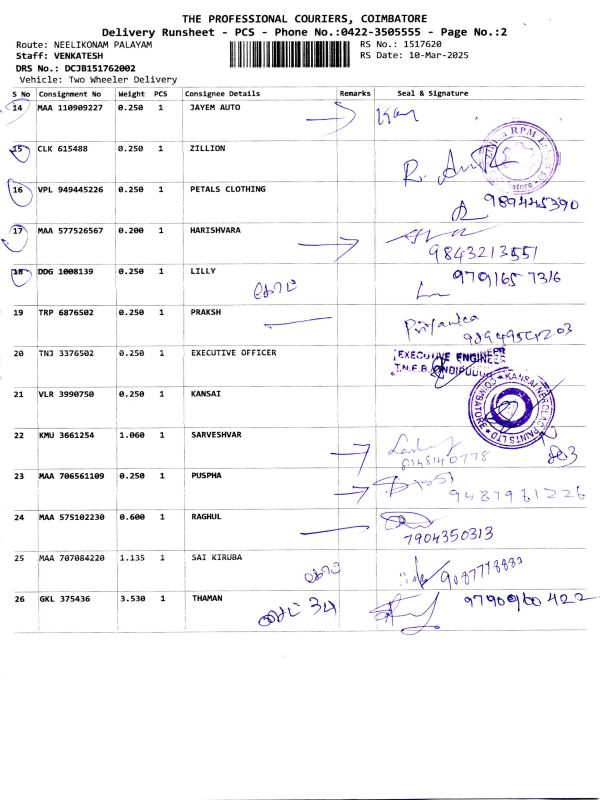 THE PROFESSIONAL COURIERS, COIMBATORE
Delivery Runsheet - PCS - Phone No.:0422-3505555 - Page No.:2
Route: NEELIKONAM PALAYAM
RS No.: 1517620
Staff: VENKATESH
RS Date: 10-Mar-2025
DRS No.: DCJB151762002
Vehicle: Two Wheeler Delivery
S No Consignment No Weight PCS Consignee Details Remarks Seal & Signature
14 MAA 110909227 0.250 1 JAYEM AUTO
15 CLK 615488 0.250 1 ZILLION
16 VPL 949445226 0.250 1 PETALS CLOTHING
989445390
17 MAA 577526567 0.200 1 HARISHVARA
9843213551
18 DDG 1008139 0.250 1 LILLY 9791657316
19 TRP 6876502 0.250 1 PRAKSH Priyanka
20 TNJ 3376502 0.250 1 EXECUTIVE OFFICER EXECUTIVE ENGINEER
21 VLR 3990750 0.250 1 KANSAI
KANSAI NEROLAC PAINTS LTD COIMBATORE
22 KMU 3661254 1.060 1 SARVESHVAR
23 MAA 706561109 0.250 1 PUSPHA
9487981226
24 MAA 575102230 0.600 1 RAGHUL
7904350313
25 MAA 707084220 1.135 1 SAI KIRUBA
9087778883
26 GKL 375436 3.530 1 THAMAN 9790960422